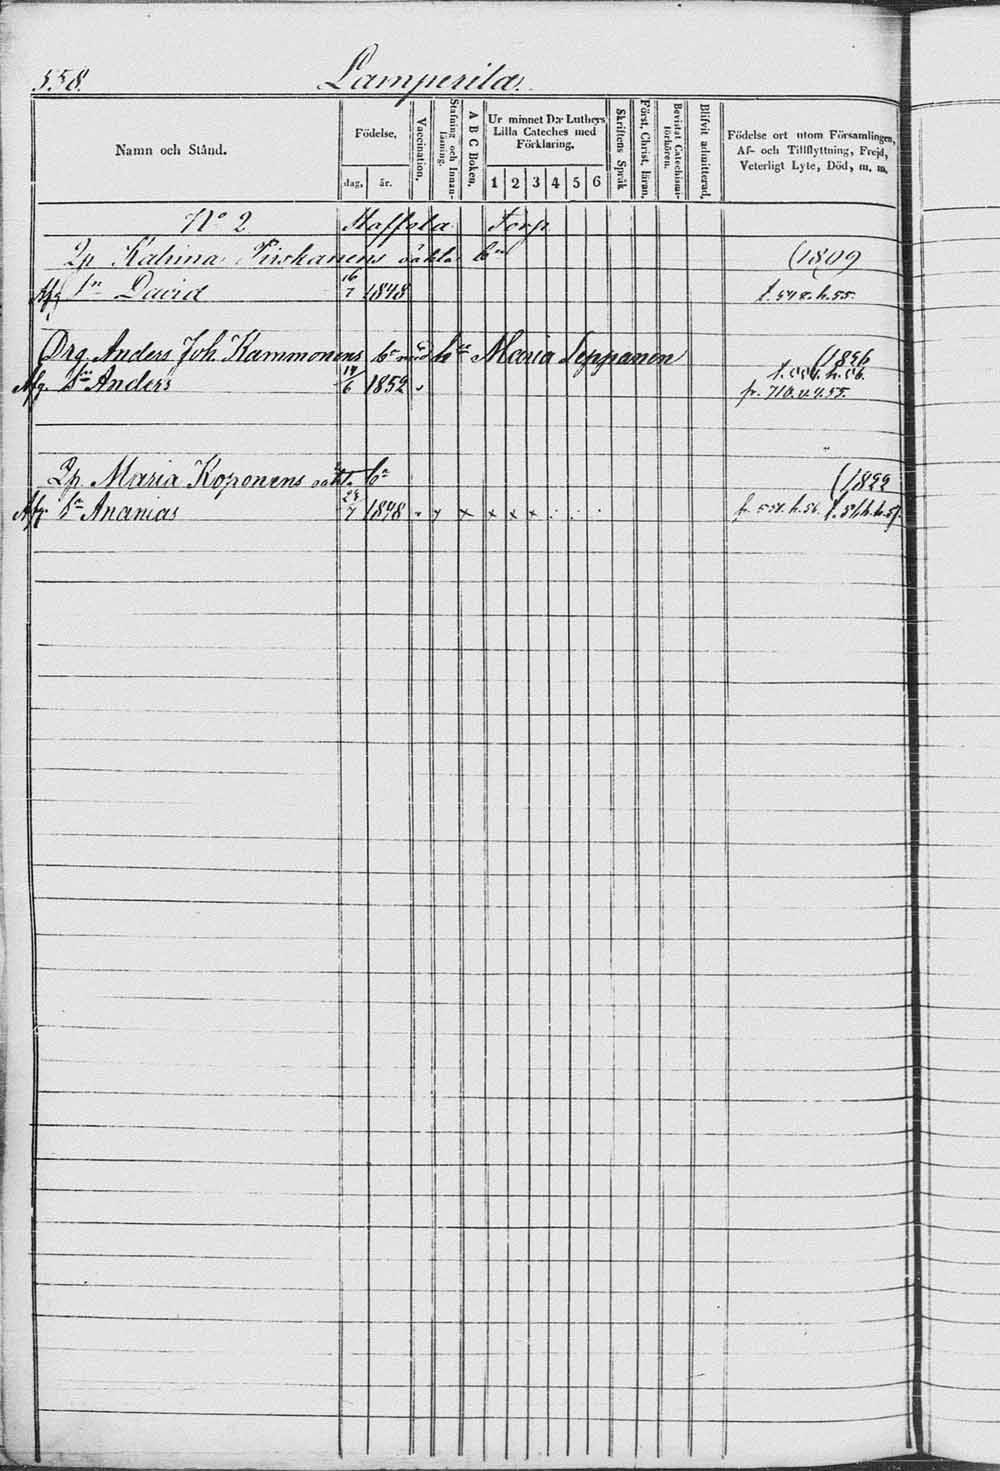 558.
Lamperila.
Namn och Stånd.
Födelse,
dag, år.
Vaccination.
Stafning och Innanläsning.
A B C Boken.
Ur minnet D:r Luthers Lilla Cateches med Förklaring.
1 2 3 4 5 6
Skriftens Språk
Först. Christ. läran.
Bevistat Catechismiförhören.
Blifvit admitterad.
Födelse ort utom Församlingen, Af- och Tillflyttning, Frejd, Veterligt Lyte, Död, m. m.
N° 2 Staffola Torp
Qp Katrina Pirskanens oäkta (1809
Afg Sn David 16/7 1848
Drg. Anders Joh. Kammonens med Maria Seppänen (1856
Afg. Anders 6 1852 fr. 710.
Qp. Maria Koponens oäkta (1822
Afg. Ananias 7 1848 x x x x x